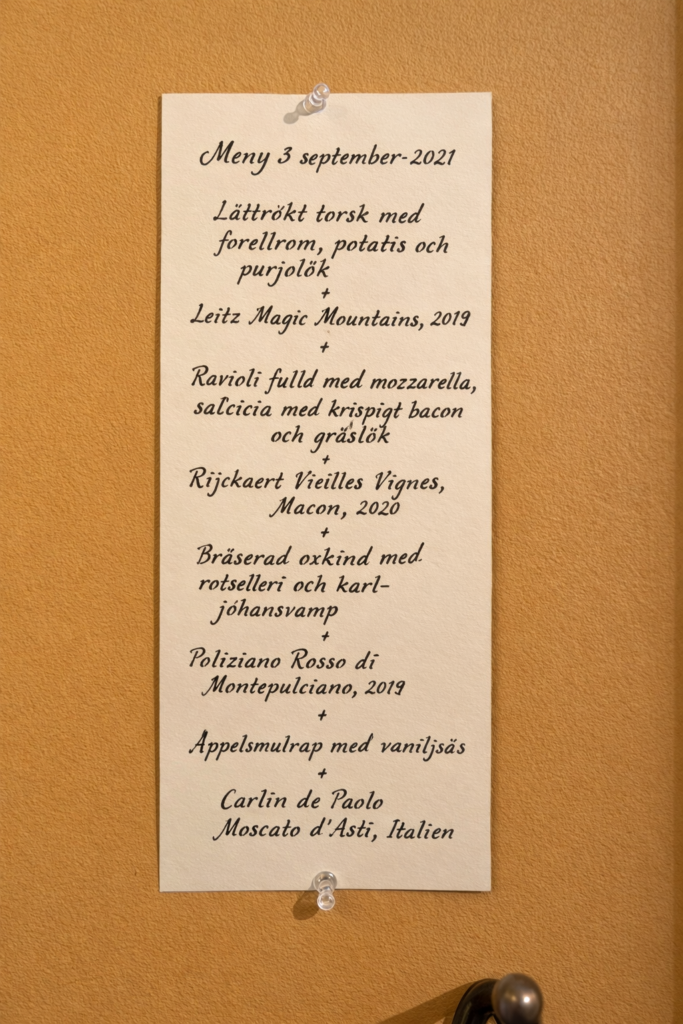 Meny 3 september-2021
Lättrökt torsk med
forellrom, potatis och
purjolök
+
Leitz Magic Mountains, 2019
+
Ravioli fulld med mozzarella,
salcicia med krispigt bacon
och gräslök
+
Rijckaert Vieilles Vignes,
Macon, 2020
+
Bräserad oxkind med
rotselleri och karl-
jóhansvamp
+
Poliziano Rosso di
Montepulciano, 2019
+
Äppelsmulrap med vaniljsäs
+
Carlin de Paolo
Moscato d'Asti, Italien